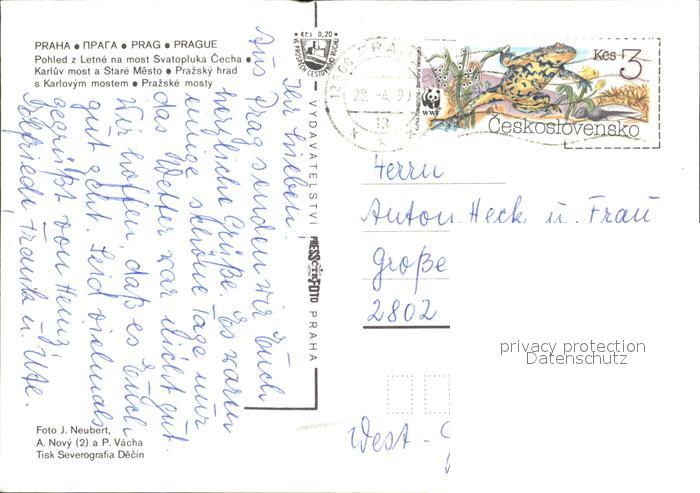 PRAHA ● ПРАГА ● PRAG ● PRAGUE
Pohled z Letné na most Svatopluka Čecha ●
Karlův most a Staré Město ● Pražský hrad
s Karlovým mostem ● Pražské mosty
Ihr Lieben!
Aus Prag senden wir Euch
herzliche Grüße. Es waren
einige schöne Tage nur
das Wetter war nicht gut
Wir hoffen, daß es Euch
gut geht. Seid vielmals
gegrüßt von Heinz,
Elfriede Frank u. Ute.
Foto J. Neubert,
A. Nový (2) a P. Vácha
Tisk Severografia Děčín
Kčs 0,20
VYDAVATELSTVÍ PRESSFOTO PRAHA
28.-4.9
13
WWF
Kčs 3
Československo
Herrn
Anton Heck u. Frau
Große
2802
West -
privacy protection
Datenschutz